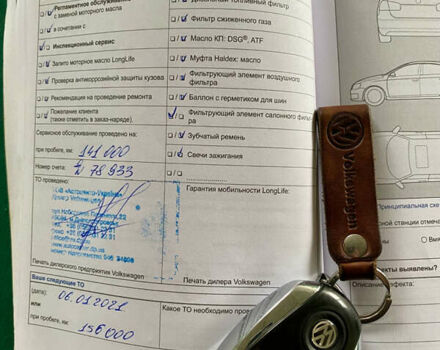 Регламентное обслуживание
с заменой моторного масла
в сочетании с
Инспекционный сервис
Залито моторное масло LongLife
Проверка антикоррозийной защиты кузова
Рекомендация на проведение ремонта
Пожелание клиента
(также отметить в заказ-наряде).
Сервисное обслуживание проведено на:
при пробеге, км: 141 000
Номер счета: 78933
ТО проведено:
Печать дилерского предприятия Volkswagen
Ваше следующее ТО
дата: 06.01.2021
или
при пробеге, км: 156 000
топливный фильтр
Фильтр сжиженного газа
Масло КП: DSG®, ATF
Муфта Haldex: масло
Фильтрующий элемент воздушного
фильтра
Баллон с герметиком для шин
Фильтрующий элемент салонного
Зубчатый ремень
Свечи зажигания
Гарантия мобильности LongLife:
Печать дилера Volkswagen
Какое ТО необходимо
Принципиальная
станции отметить
выявлены?
Описание
Volkswagen